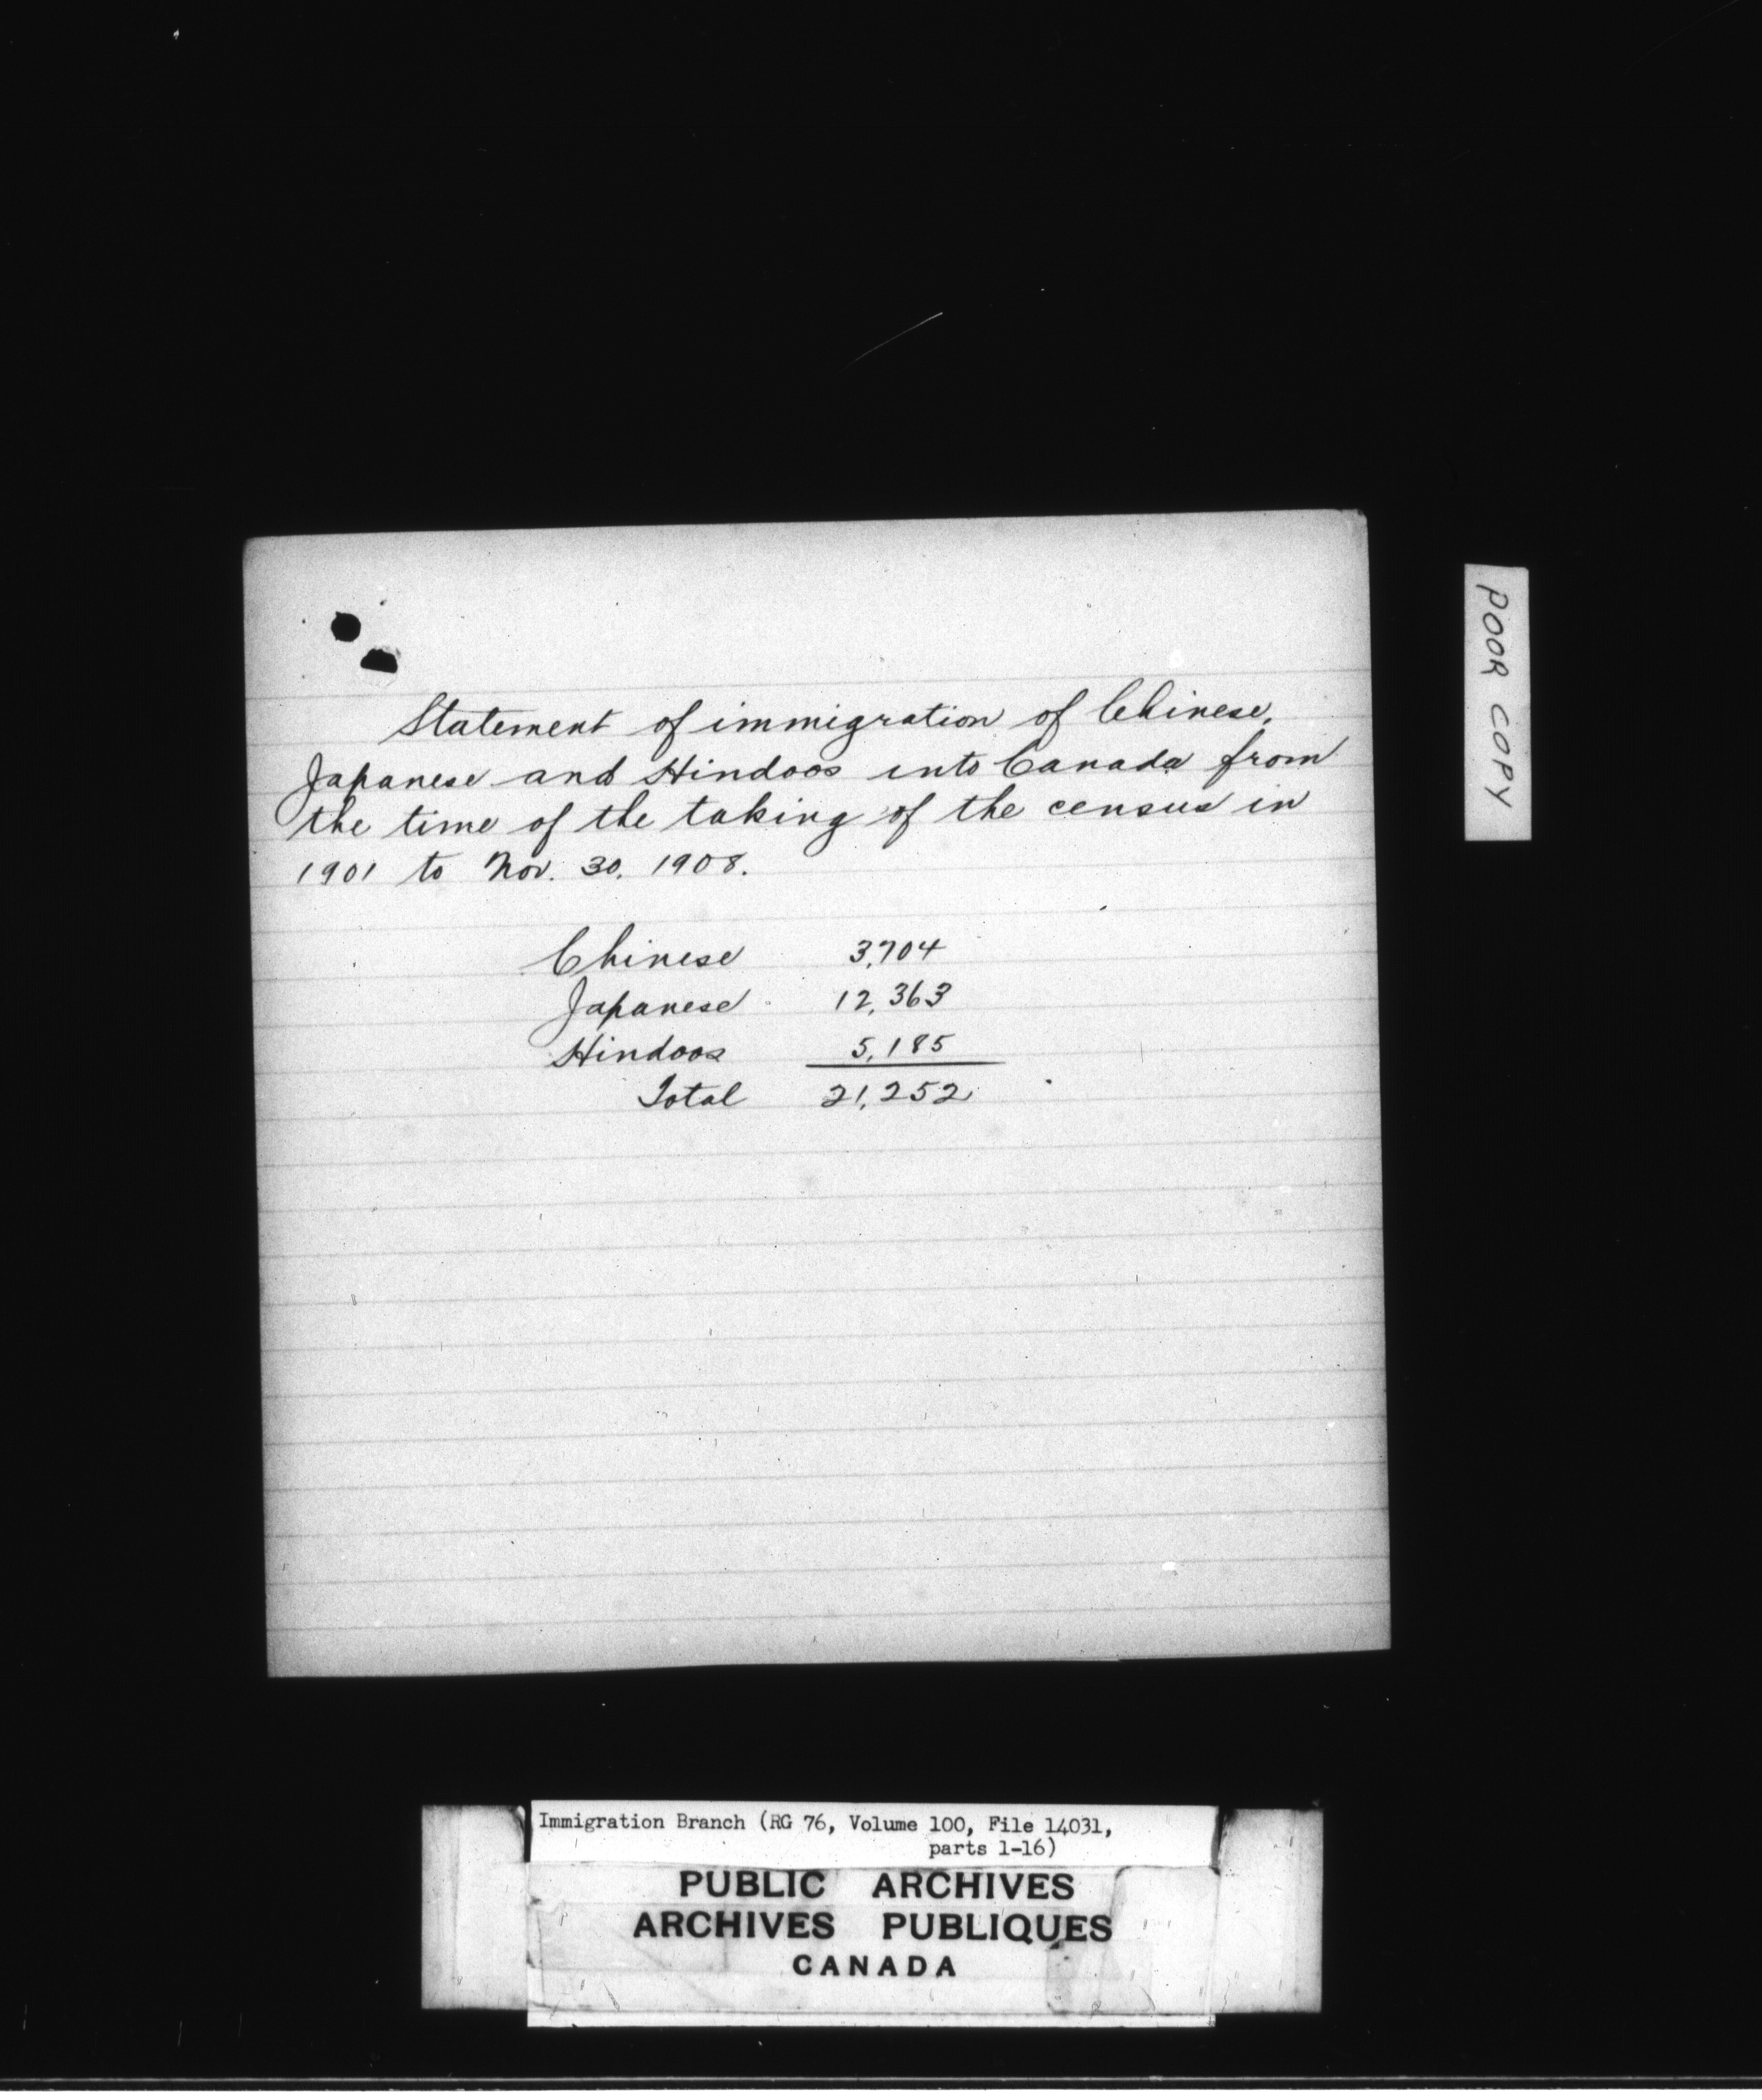 Statement of immigration of Chinese,
Japanese and Hindoos into Canada from
the time of the taking of the census in
1901 to Nov. 30, 1908.
Chinese 3,704
Japanese 12,363
Hindoos 5,185
Total 21,252
POOR COPY
Immigration Branch (RG 76, Volume 100, File 14031,
parts 1-16)
PUBLIC ARCHIVES
ARCHIVES PUBLIQUES
CANADA